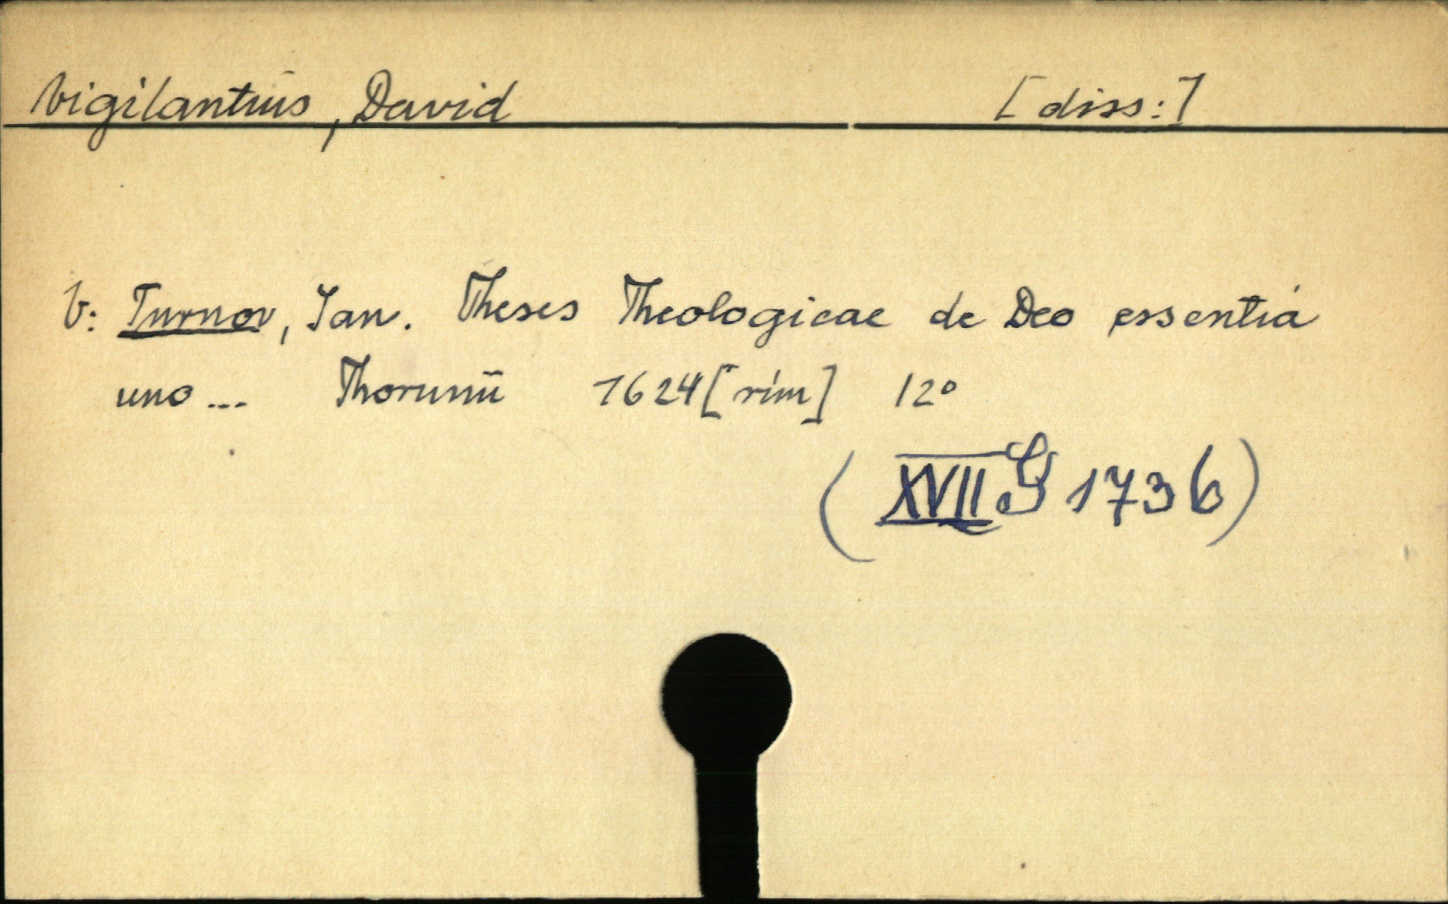 Vigilantius, David [diss:]
V: Turnov, Jan. Theses Theologicae de Deo essentiá
uno ... Thorunii 1624 [rím] 12°
(XVII G 1736)